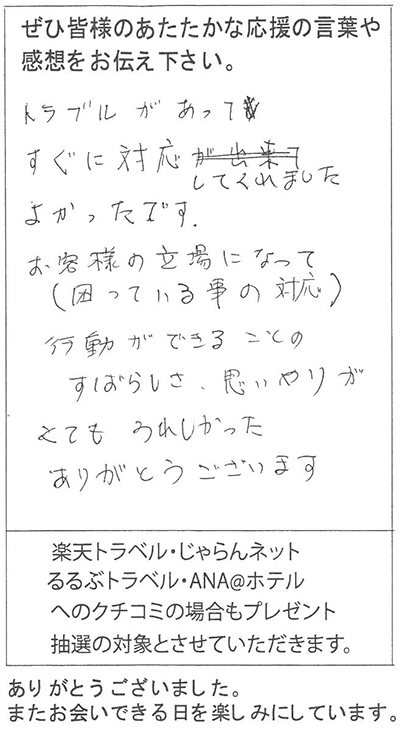 ぜひ皆様のあたたかな応援の言葉や
感想をお伝え下さい。
トラブルがあっても
すぐに対応が出来て
してくれました
よかったです.
お客様の立場になって
(困っている事の対応)
行動ができることの
すばらしさ、思いやりが
とても うれしかった
ありがとうございます
楽天トラベル・じゃらんネット
るるぶトラベル・ANA@ホテル
へのクチコミの場合もプレゼント
抽選の対象とさせていただきます。
ありがとうございました。
またお会いできる日を楽しみにしています。